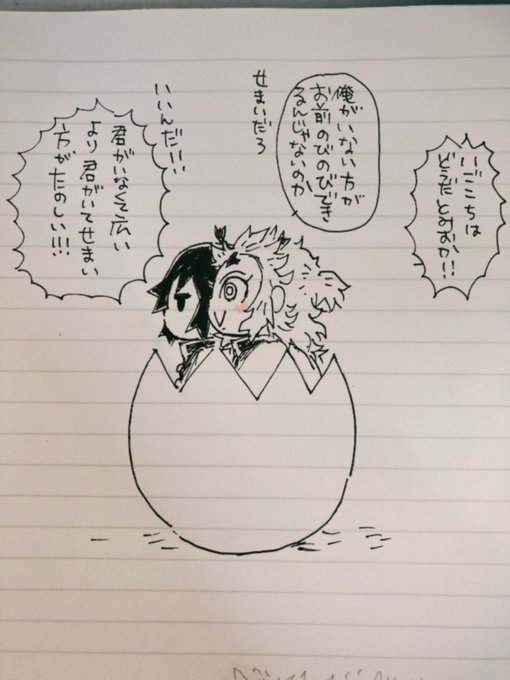 いごこちは
どうだとみおか!!
俺がいない方が
お前のびのびでき
るんじゃないのか
せまいだろ
いいんだ!!
君がいなくて広い
より君がいてせまい
方がたのしい!!!